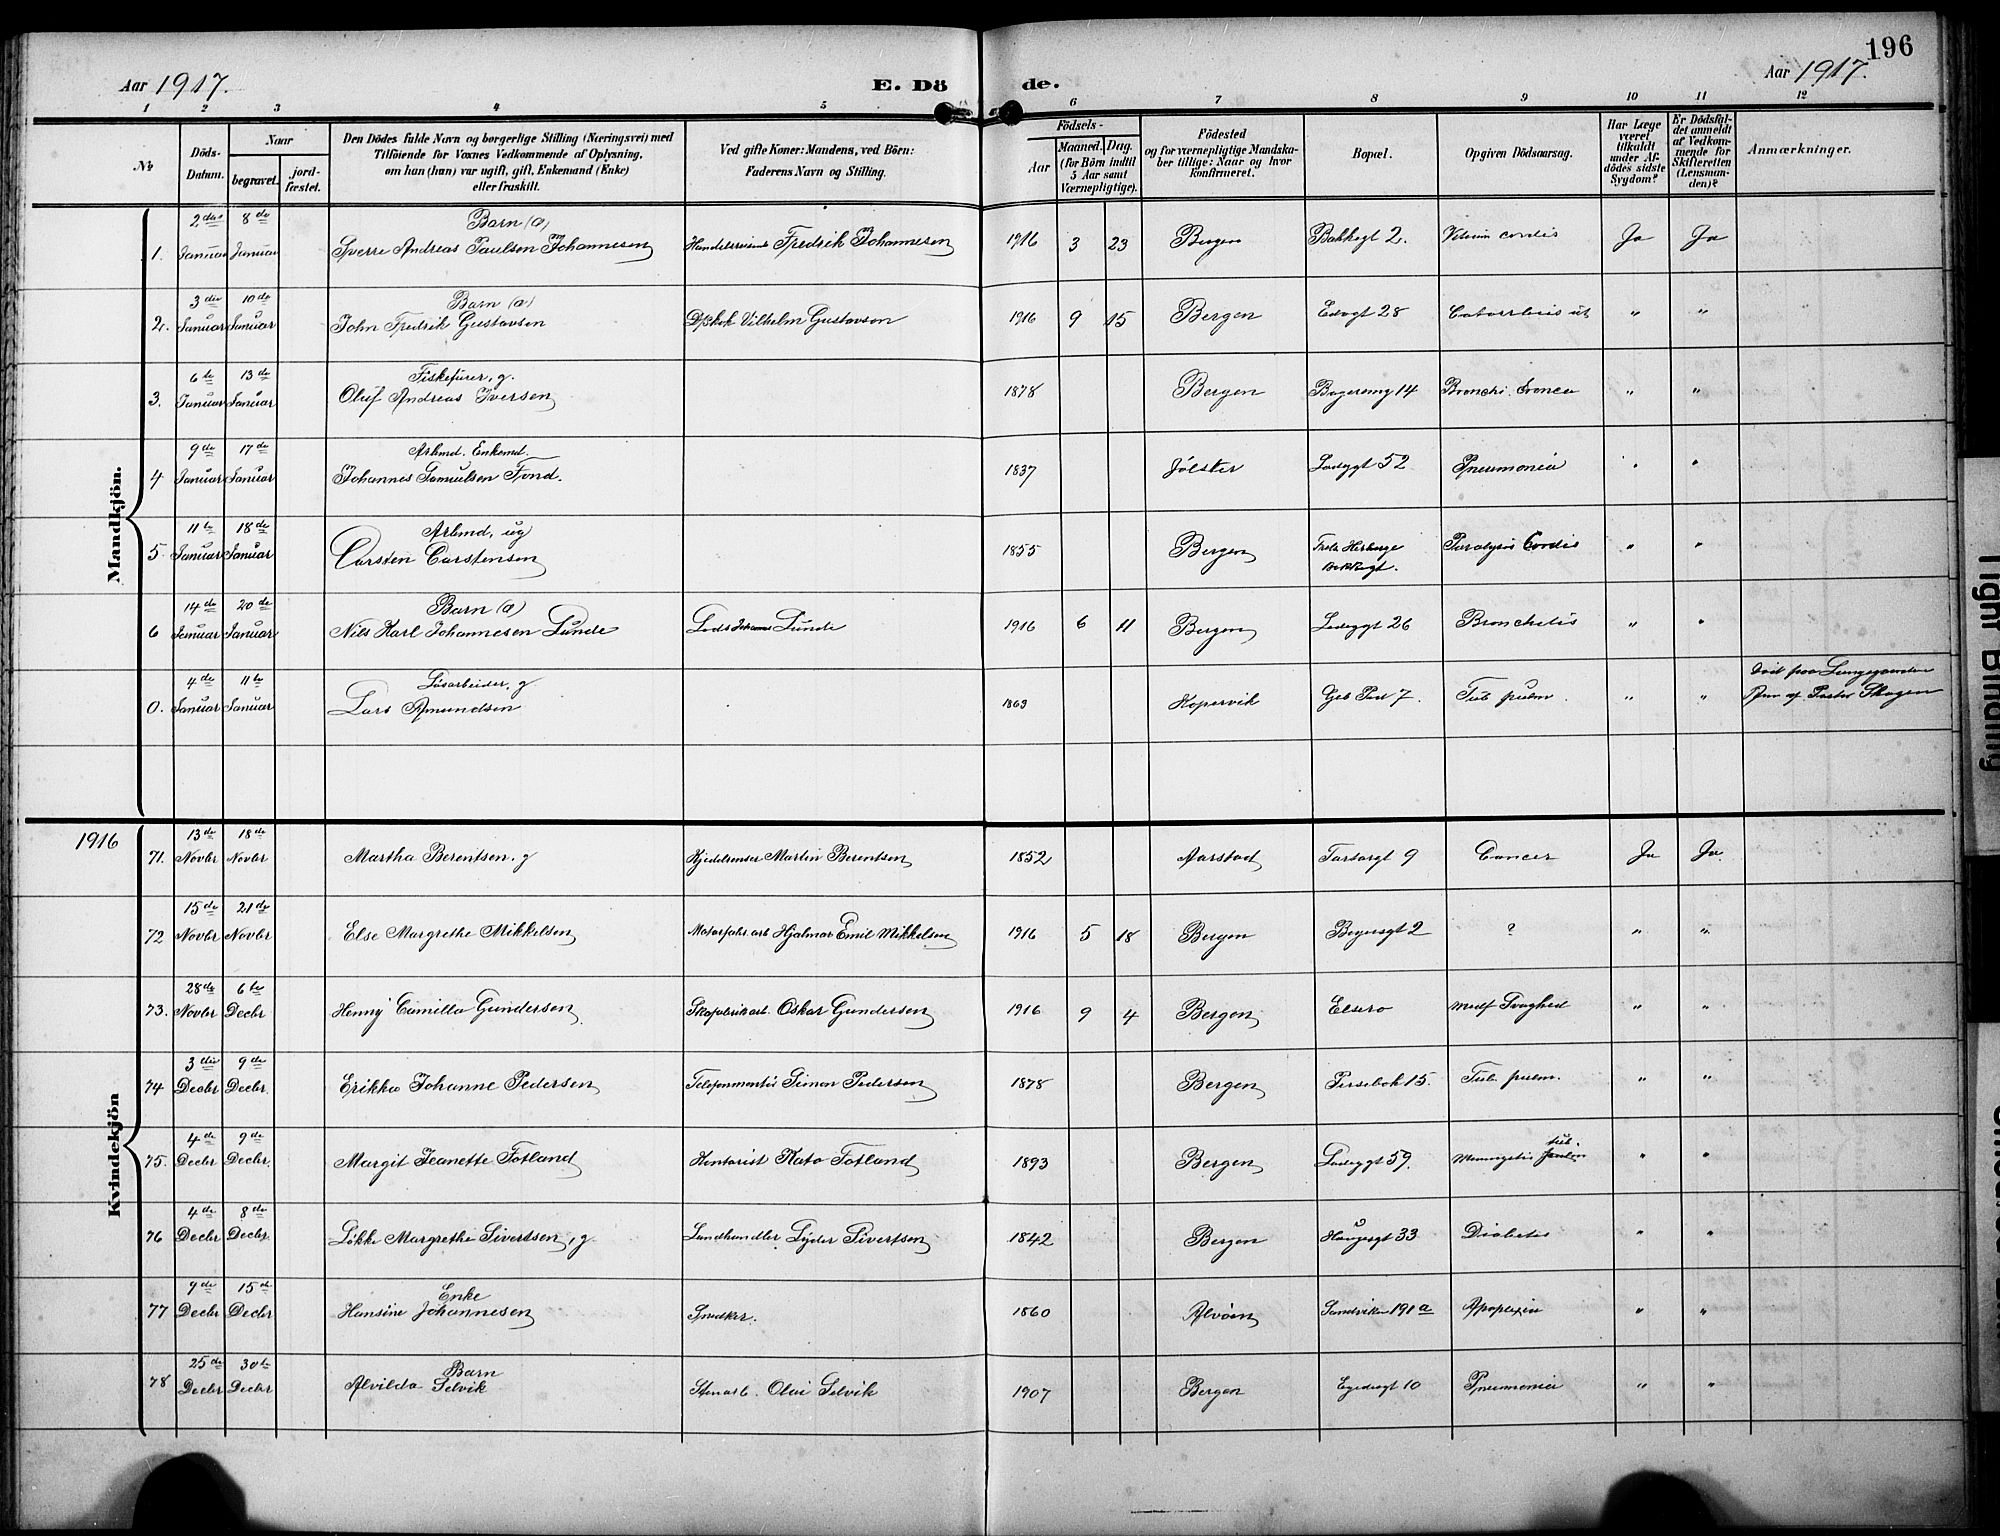 196
Aar 1917. E. Dö de. Aar 1917.
1 2 3 4 5 6 7 8 9 10 11 12
No
Döds-Datum.
Naar
begravet.
jord-fæstet.
Den Dödes fulde Navn og borgerlige Stilling (Næringsvei) med
Tilföiende for Voxnes Vedkommende af Oplysning,
om han (hun) var ugift, gift, Enkemand (Enke)
eller fraskilt.
Ved gifte Koner: Mandens, ved Börn:
Faderens Navn og Stilling.
Födsels-
Aar
Maaned. Dag.
(for Börn indtil
5 Aar samt
Værnepligtige).
Födested
og for værnepligtige Mandska-
ber tillige: Naar og hvor
konfirmeret.
Bopæl.
Opgiven Dödsaarsag.
Har Læge
været
tilkaldt
under Af-
dödes sidste
Sygdom?
Er Dödsfal-
det anmeldt
af Vedkom-
mende for
Skifteretten
(Lensman-
den)?
Anmærkninger.
Mandkjön.
2den 8de Barn (a)
1. Januar Januar Sverre Andreas Paulsen Johannesen Fredrik Johannesen 1916 3 23 Bergen Bakkegt 2. Vitium cordis Ja Ja
3die 10de Barn (a)
2. Januar Januar John Fredrik Gustavsen Vilhelm Gustavson 1916 9 15 Bergen 28 " "
6te 13de Fiskefürer, g.
3. Januar Januar Oluf Andreas Iversen 1878 Bergen 14 " "
9de 17de Arbmd. Enkemd.
4 Januar Januar Johannes Samuelsen Fond. 1837 Jölster Ladegt 52 Pneumonia " "
11te 18de Arbmd, ug
5. Januar Januar Carsten Carstensen 1855 Bergen Herberge Paralysis Cordis " "
14de 20de Barn (a)
6 Januar Januar Nils Karl Johannesen Lünde Lods Johannes Lunde 1916 6 11 Bergen Ladegt 26 Bronchitis " "
4de 11te Lösarbeider, g
0. Januar Januar Lars Amundsen 1869 Kopervik 7. Tub. pulm. " " Död paa Lungegaarden
af Pastor Skagen
Kvindekjön
1916
13de 18de
71. Novbr Novbr Martha Berentsen, g Martin Berentsen 1852 Aarstad 9 Cancer Ja Ja
15de 21de
72 Novbr Novbr Else Margrethe Mikkelsen Hjalmar Emil Mikkelsen 1916 5 18 Bergen 2 ? " "
28de 6te
73. Novbr Decbr Henny Camilla Gundersen Skofabrikarb. Oskar Gundersen 1916 9 4 Bergen Elsero medf Svaghed " "
3die 9de
74 Decbr Decbr. Erikka Johanne Pedersen Telefonmontör Simon Pedersen 1878 Bergen 15. Tub. pulm. " "
4de 9de tub.
75. Decbr Decbr. Margit Jeanette Totland Kontorist Kato Totland 1893 Bergen Ladegt 59. " "
4de 8de
76 Decbr Decbr. Lökke Margrethe Sivertsen, g. Landhandler Lyder Sivertsen 1842 Bergen Haugegt 33 Diabetes " "
9de 15de Enke
77 Decbr Decbr Hansine Johannesen Snedker. 1860 Alvöen Sandviken 191a Apoplexia " "
25de 30te Barn
78 Decbr Decbr Alvilda Selvik Stenarb. Olai Selvik 1907 Bergen 10 Pneumonia " "
Tight Binding